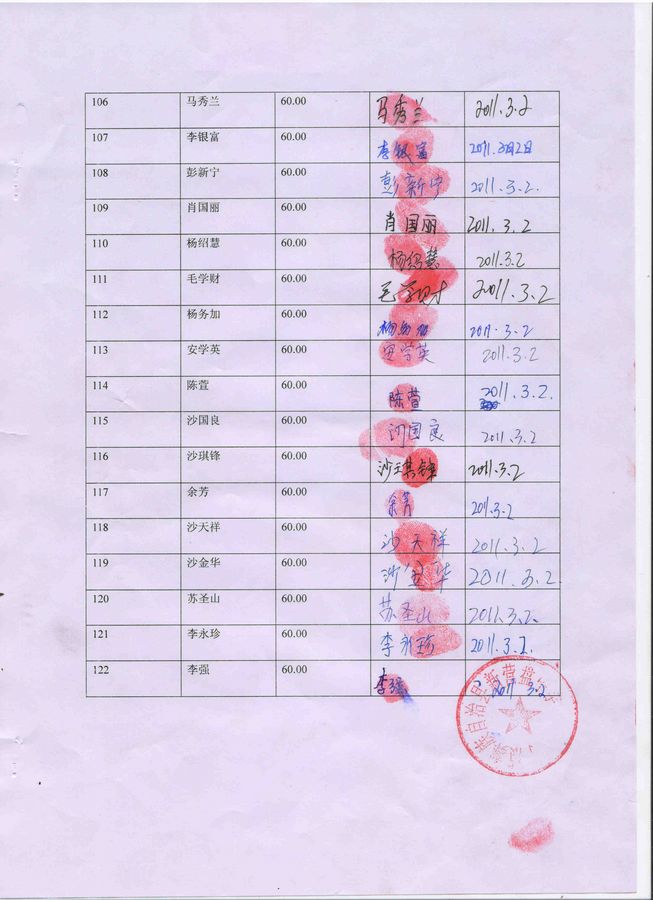 106 马秀兰 60.00 马秀兰 2011.3.2
107 李银富 60.00 李银富 2011.3月2日
108 彭新宁 60.00 彭新宁 2011.3.2.
109 肖国丽 60.00 肖国丽 2011.3.2
110 杨绍慧 60.00 杨绍慧 2011.3.2
111 毛学财 60.00 毛学财 2011.3.2
112 杨务加 60.00 杨务加 2011.3.2
113 安学英 60.00 安学英 2011.3.2
114 陈萱 60.00 陈萱 2011.3.2.
115 沙国良 60.00 沙国良 2011.3.2
116 沙琪锋 60.00 沙琪锋 2011.3.2
117 余芳 60.00 余芳 2011.3.2
118 沙天祥 60.00 沙天祥 2011.3.2
119 沙金华 60.00 沙金华 2011.3.2.
120 苏圣山 60.00 苏圣山 2011.3.2.
121 李永珍 60.00 李永珍 2011.3.2.
122 李强 60.00 李强 2011 3.2
族自治县新营盘